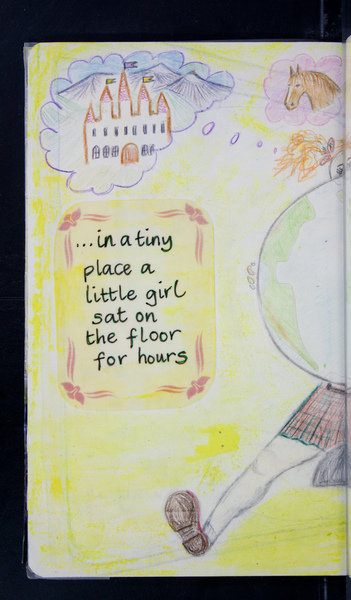 ...in a tiny
place a
little girl
sat on
the floor
for hours